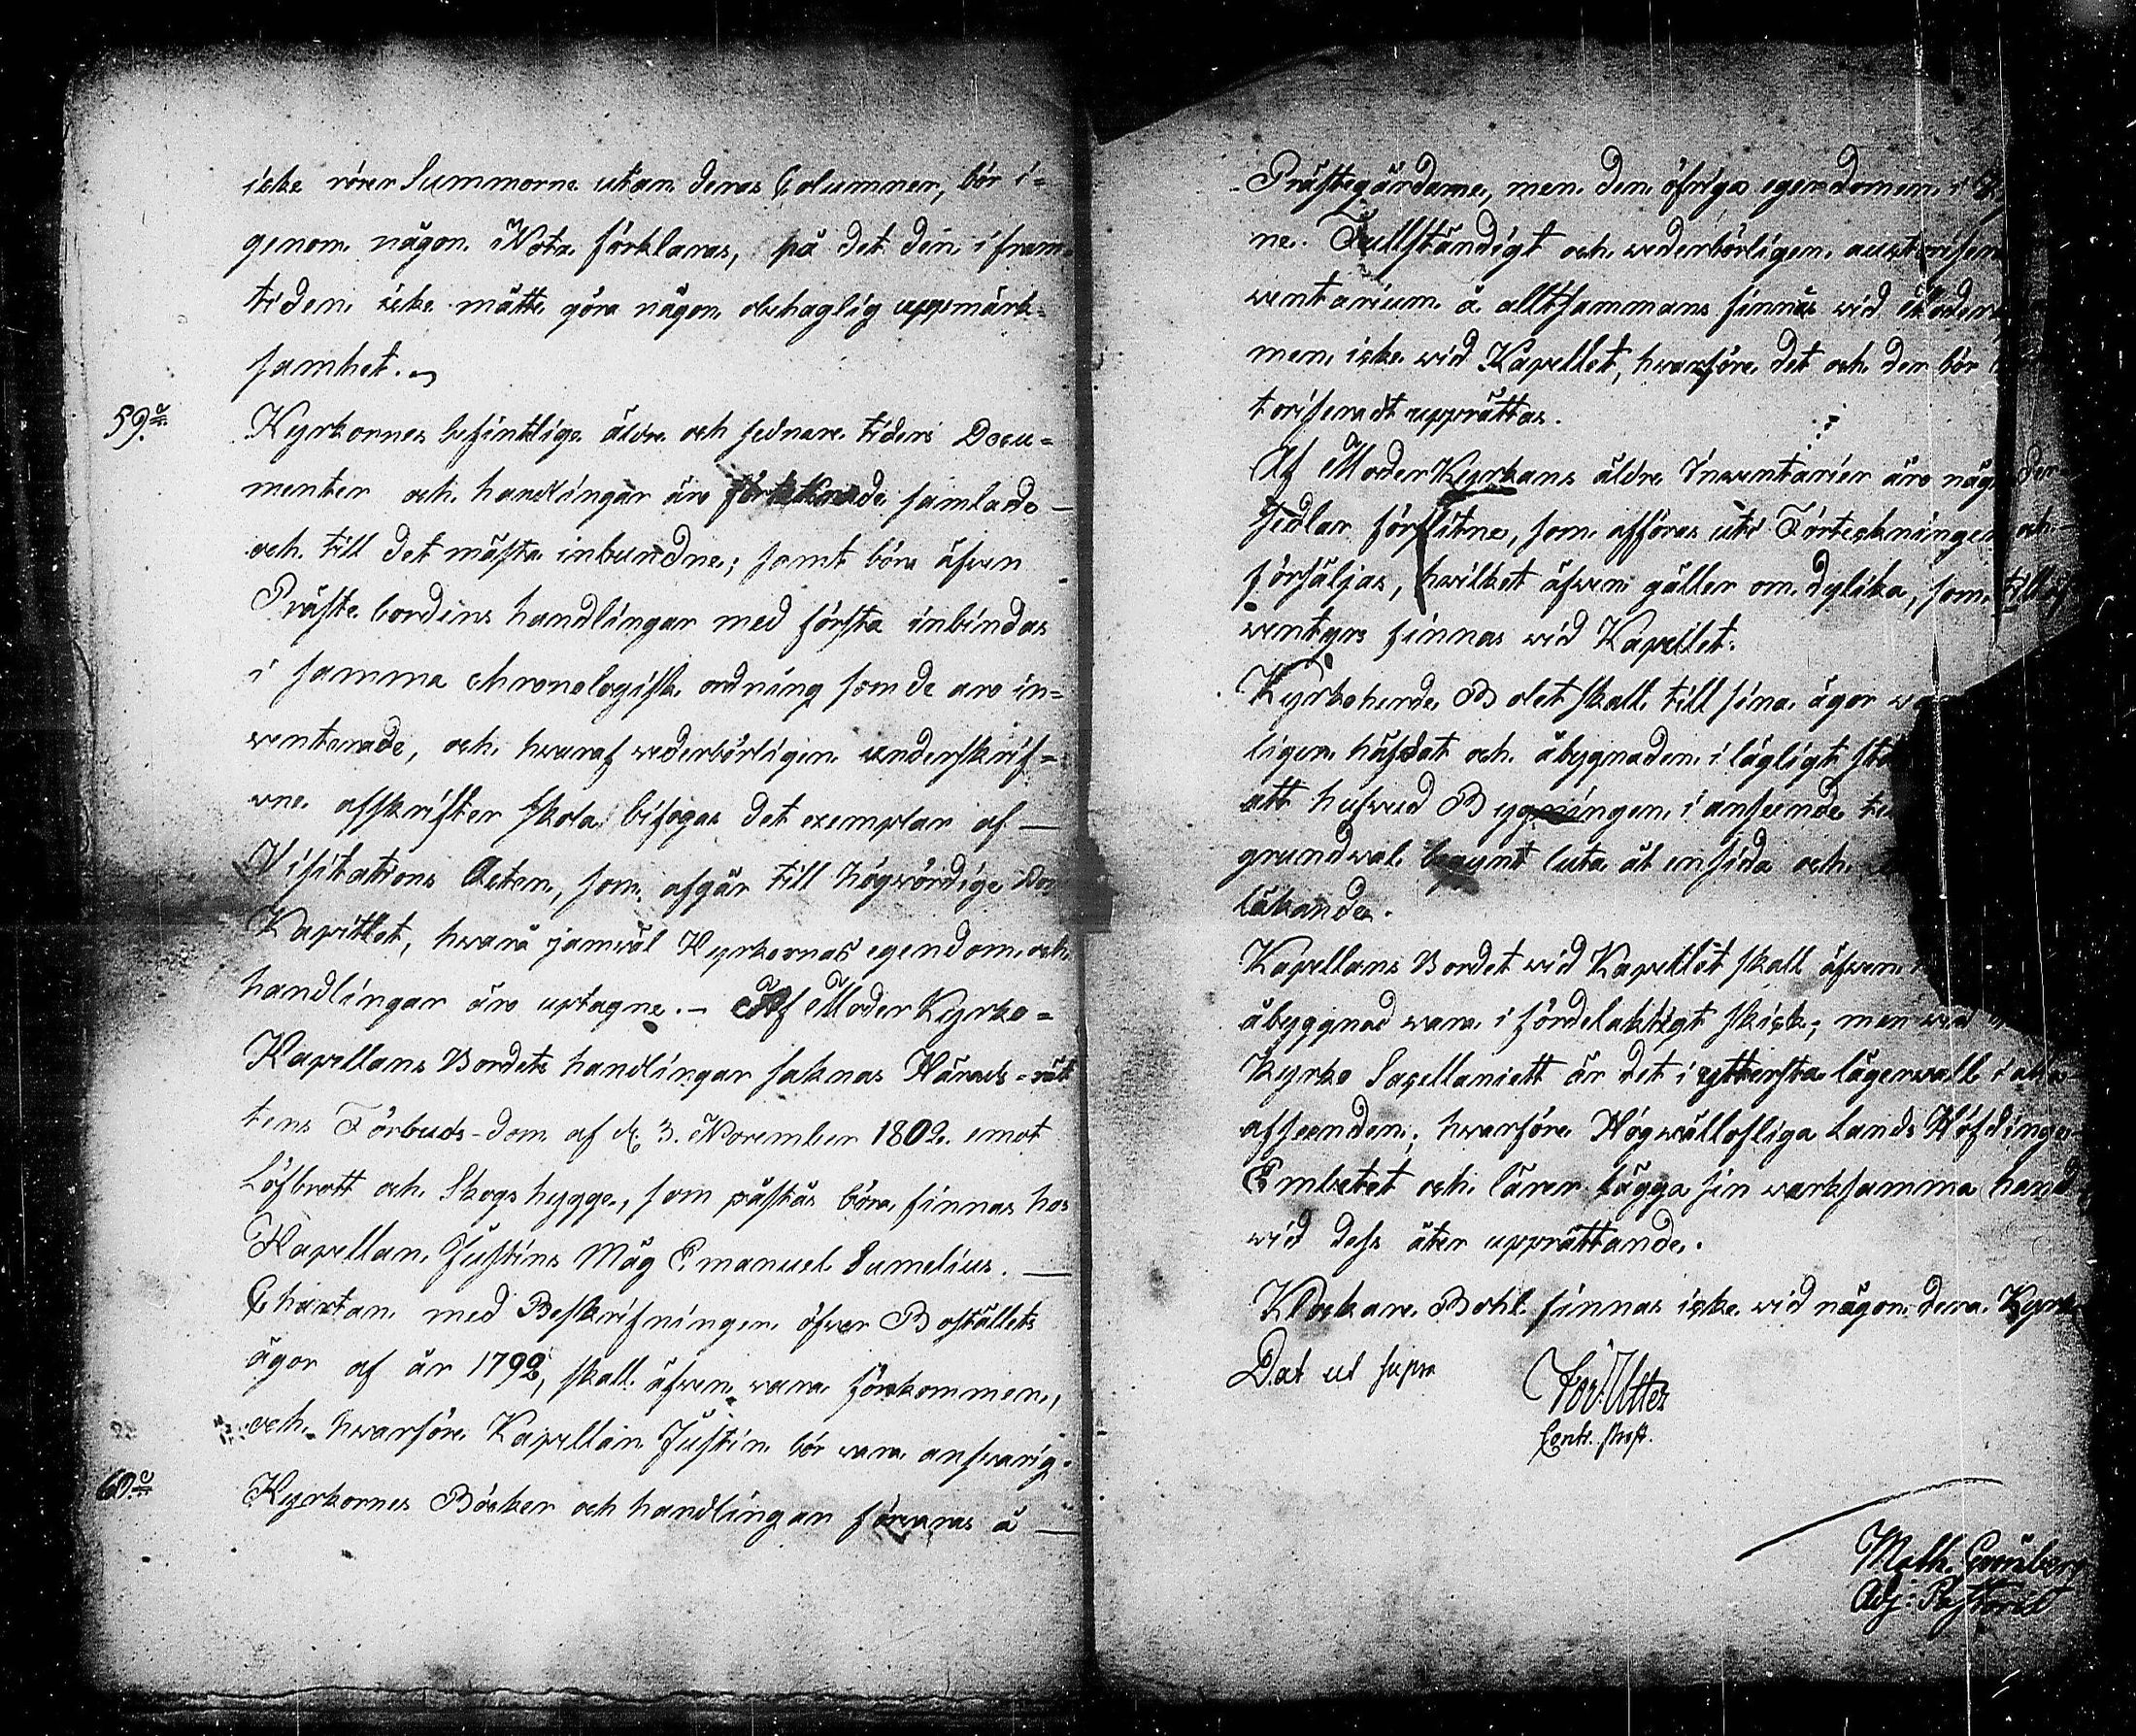 icke rörer Summorne utan deras Columner, bör i=
genom någon Nota förklaras, på det den i fram-
tiden icke måtte göra någon obehaglig uppmärk=
samhet.
59:o Kyrkornes befintlige äldre och sednare tiders Docu=
menter och handlingar äro förteknade samlade —
och till det mästa inbundne; samt böra äfven
Präste bordens handlingar med första inbindas
i samma chronologisk ordning som de äro in=
venterade, och hvaraf wederbörligen underskrif=
vne afskrifter skola bifogas det exemplar af —
Visitations Acten, som afgår till Högvördige Dom
Kapitlet, hvarå jemväl Kyrkornas egendom och
handlingar äro uptagne. — Af Moder Kyrko=
Kapellans Bordets handlingar saknas Härads-rät
tens Förbuds-dom af d. 3. November 1802. emot
Löfbrott och Skogs hygge, som påstås böra finnas hos
Kapellan Justins Måg Emanuel Sumelius. —
Chartan med Beskrifningen öfver Boställets
ägor af år 1792, skall äfven vara förkommen,
och hvarföre Kapellan Justin bör vara answarig.
60:o Kyrkornes Böcker och handlingar förvaras å —
Prästegårdarne, men den öfriga egendomen i
ne. Fullständigt och wederbörligen auctoriserat
ventarium å alltsammans finnes wid Moder
men icke wid Kapellet, hvarföre det och der bör
toriseradt upprättas.
Af Moder Kyrkans äldre Inventarier äro någ der
sedlar förslitne, som afföras utur Förteckningen och
försäljas, hwilket äfven gäller om dylika, som till äf
ventyrs finnas wid Kapellet.
Kyrkoherde Bolet skall till sina ägor
ligen häfdat och åbygnaden i lagligt stå
att hufvud Bygningen i anseende til
grundval begynt luta åt en sida och
läkande.
Kapellans Bordet wid Kapellet skall äfven
åbyggnad vara i fördelaktigt skick; men wid
Kyrko Sacellaniett är det i yttersta lägervall i alla
afseenden; hvarföre Högwällofliga Lands Höfdinge
Embetet och lärer lägga sin werksamma hand
wid dess åter upprättande.
Klockare Bohl finnas icke wid någondera Kyrk
Dat ut supra
Utter
Contr. Prost.
Math. Grönberg
Adj: Pastoris